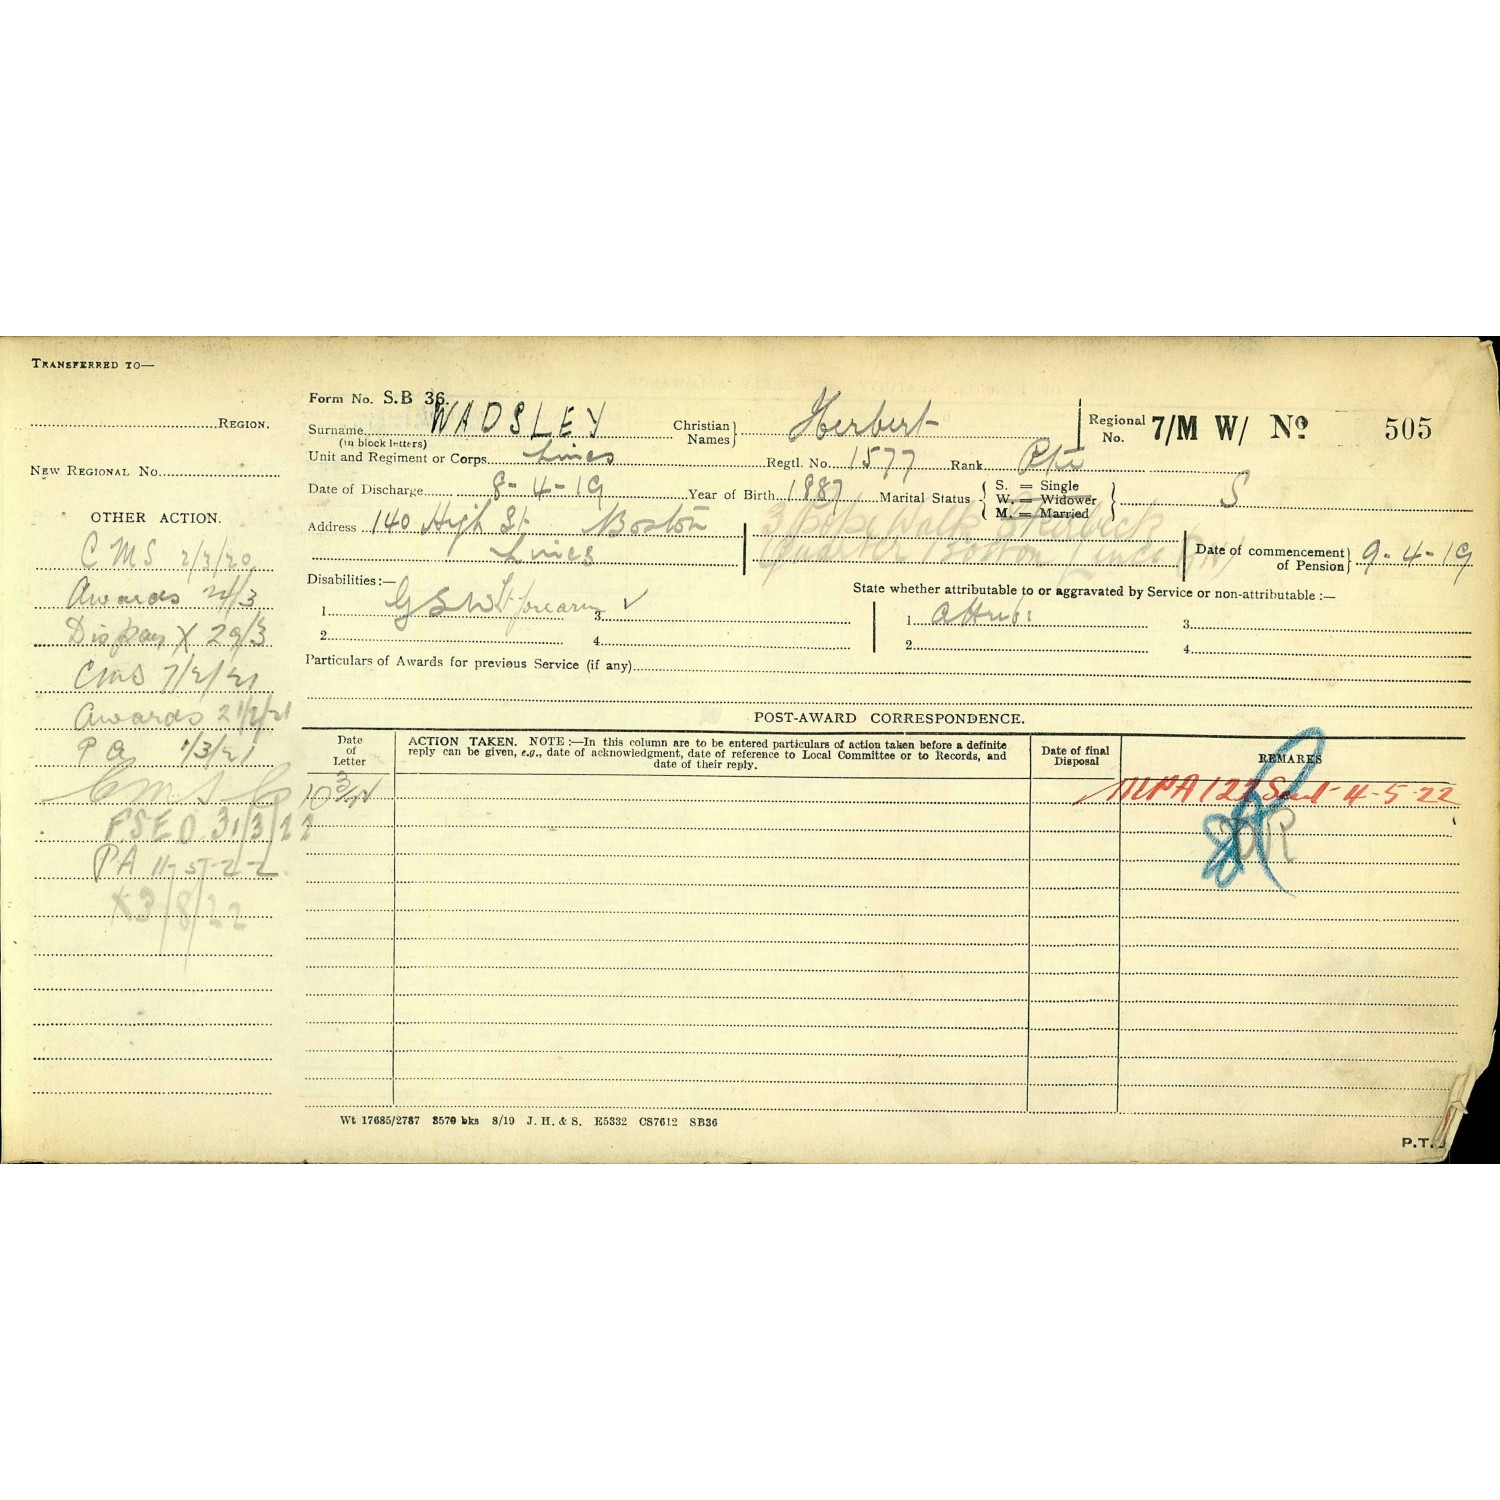 TRANSFERRED TO—
REGION.
NEW REGIONAL NO.
OTHER ACTION.
CMS 2/3/20
Awards 24/3
Dispan X 29/3
CMS 7/2/21
Awards 21/2/21
PA 1/3/21
CMS
PSED 31/3/22
PA 11-5-22
X3/8/22
Form No. S.B 36.
Surname WADSLEY Christian Names} Herbert Regional No. 7/M W/ No 505
(in block letters)
Unit and Regiment or Corps Lincs Regtl. No. 1577 Rank Pte
Date of Discharge 8-4-19 Year of Birth 1887 Marital Status { S. = Single W. = Widower M. = Married } S
Address 140 High St Boston
Lincs
Skirbeck
Quarter Boston Lincs
Date of commencement of Pension} 9-4-19
Disabilities:— State whether attributable to or aggravated by Service or non-attributable :—
1 GSW Lt forearm ✓ 3 1 attrib: 3
2 4 2 4
Particulars of Awards for previous Service (if any)
POST-AWARD CORRESPONDENCE.
Date of Letter
ACTION TAKEN. NOTE :—In this column are to be entered particulars of action taken before a definite
reply can be given, e.g., date of acknowledgment, date of reference to Local Committee or to Records, and
date of their reply.
Date of final Disposal
REMARKS
MPA 122 Sent 4-5-22
Wt 17685/2787 3570 bks 8/19 J. H. & S. E5332 CS7612 SB36
P.T.